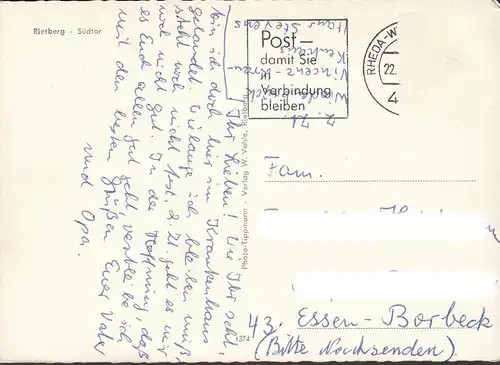 Rietberg - Südtor
Ihr Lieben! Wie Ihr seht,
bin ich doch hier im Krankenhaus
gelandet. Wie lange ich bleiben muß
steht noch nicht fest. Z. Zt. geht es mir
noch nicht gut. In der Hoffnung, daß
es Euch allen gut geht, verbleibe ich
mit den besten Grüßen Euer Vater
und Opa.
Photo-Tippmann - Verlag W. Vahle, Rietberg
374
Hans Stevens
Vincenz-
7. 71.
Post-
damit Sie
in
Verbindung
bleiben
RHEDA-W
22.
4
Fam.
43. Essen-Borbeck
(Bitte Nachsenden).